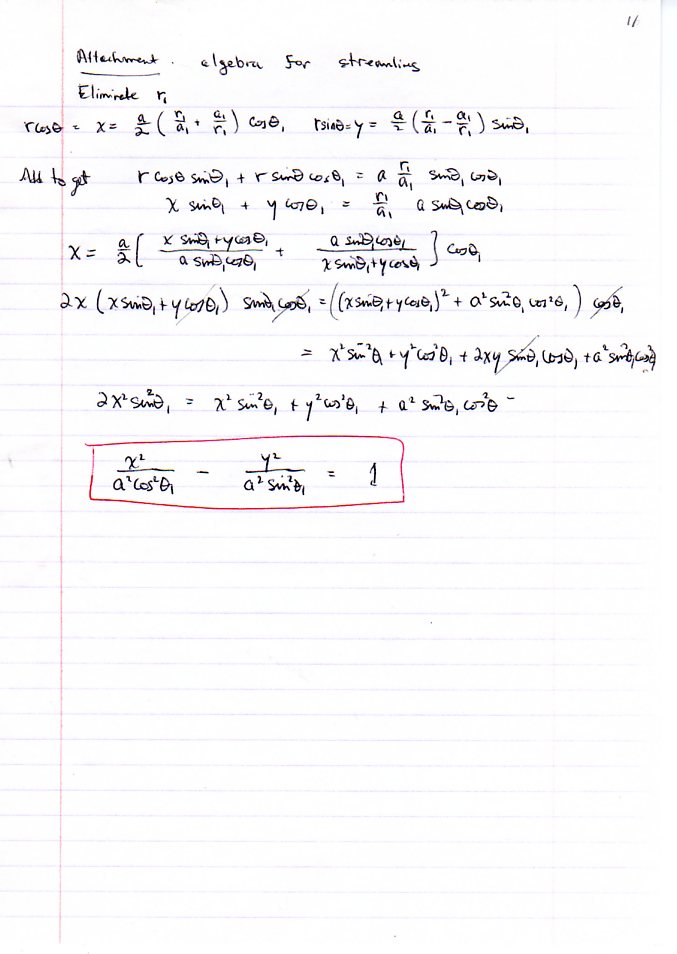 11
Attachment. algebra for streamlines
Eliminate r₁
rcosθ = x = a/2 ( r₁/a₁ + a₁/r₁ ) cosθ₁ rsinθ = y = a/2 ( r₁/a₁ - a₁/r₁ ) sinθ₁
Add to get r cosθ sinθ₁ + r sinθ cosθ₁ = a r₁/a₁ sinθ₁ cosθ₁
x sinθ₁ + y cosθ₁ = r₁/a₁ a sinθ₁cosθ₁
x = a/2 [ (x sinθ₁ + y cosθ₁)/(a sinθ₁ cosθ₁) + (a sinθ₁ cosθ₁)/(x sinθ₁ + y cosθ₁) ] cosθ₁
2x (x sinθ₁ + y cosθ₁) sinθ₁ cosθ₁ = ((x sinθ₁ + y cosθ₁)² + a² sin²θ₁ cos²θ₁) cosθ₁
= x² sin²θ₁ + y² cos²θ₁ + 2xy sinθ₁ cosθ₁ + a² sin²θ₁ cos²θ₁
2x² sin²θ₁ = x² sin²θ₁ + y² cos²θ₁ + a² sin²θ₁ cos²θ -
x²/(a² cos²θ₁) - y²/(a² sin²θ₁) = 1